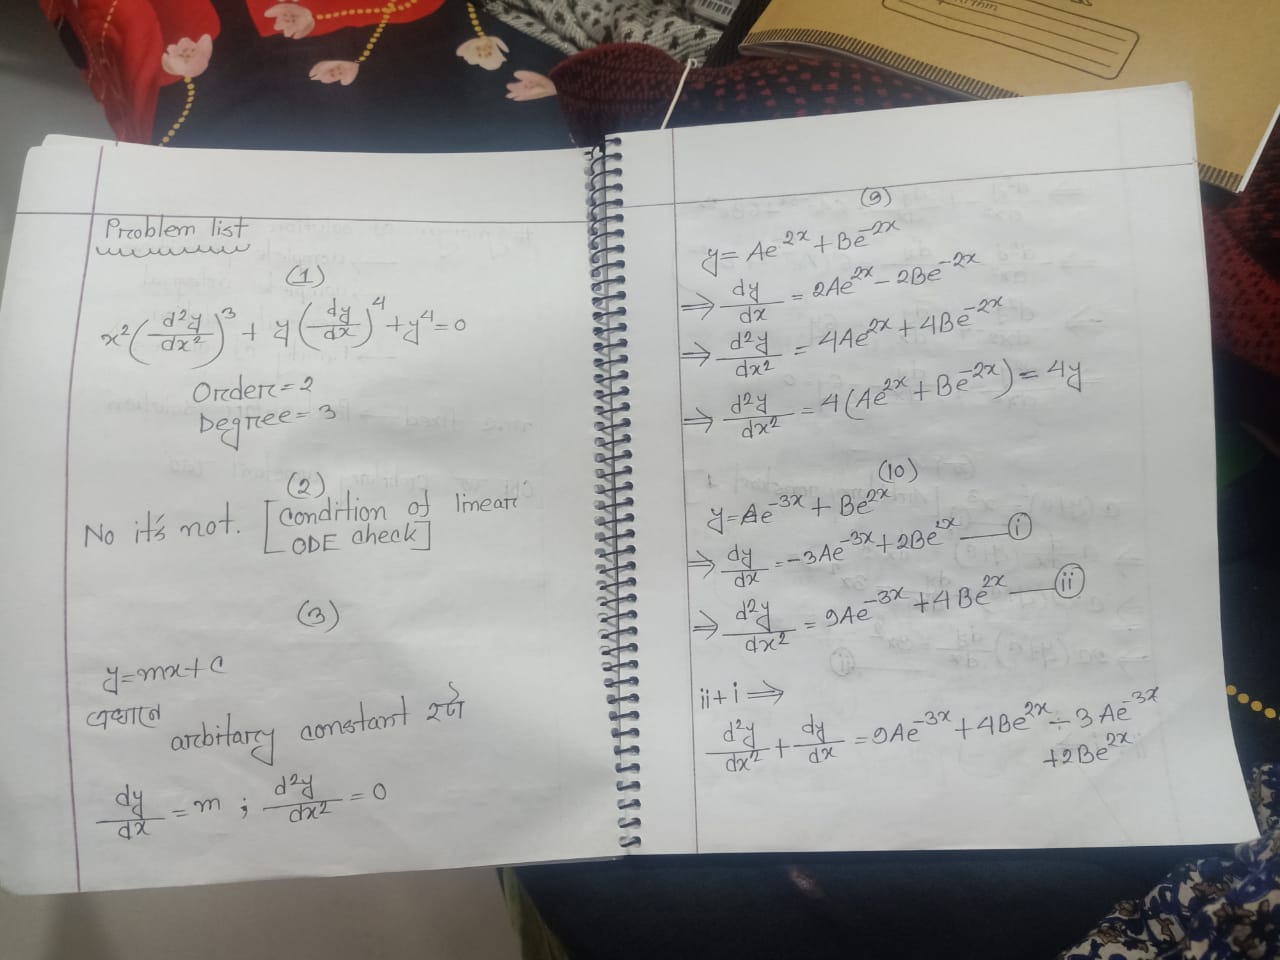 Problem list
(1)
x²(d²y/dx²)³ + y(dy/dx)⁴ + y⁴ = 0
Order = 2
Degree = 3
(2)
No it's not. [Condition of linear
ODE check]
(3)
y = mx + c
এখানে
arbitary constant ২টা
dy/dx = m ; d²y/dx² = 0
(9)
y = Ae²ˣ + Be⁻²ˣ
⇒ dy/dx = 2Ae²ˣ − 2Be⁻²ˣ
⇒ d²y/dx² = 4Ae²ˣ + 4Be⁻²ˣ
⇒ d²y/dx² = 4(Ae²ˣ + Be⁻²ˣ) = 4y
(10)
y = Ae⁻³ˣ + Be²ˣ
⇒ dy/dx = −3Ae⁻³ˣ + 2Be²ˣ — (i)
⇒ d²y/dx² = 9Ae⁻³ˣ + 4Be²ˣ — (ii)
ii + i ⇒
d²y/dx² + dy/dx = 9Ae⁻³ˣ + 4Be²ˣ − 3Ae⁻³ˣ
+ 2Be²ˣ